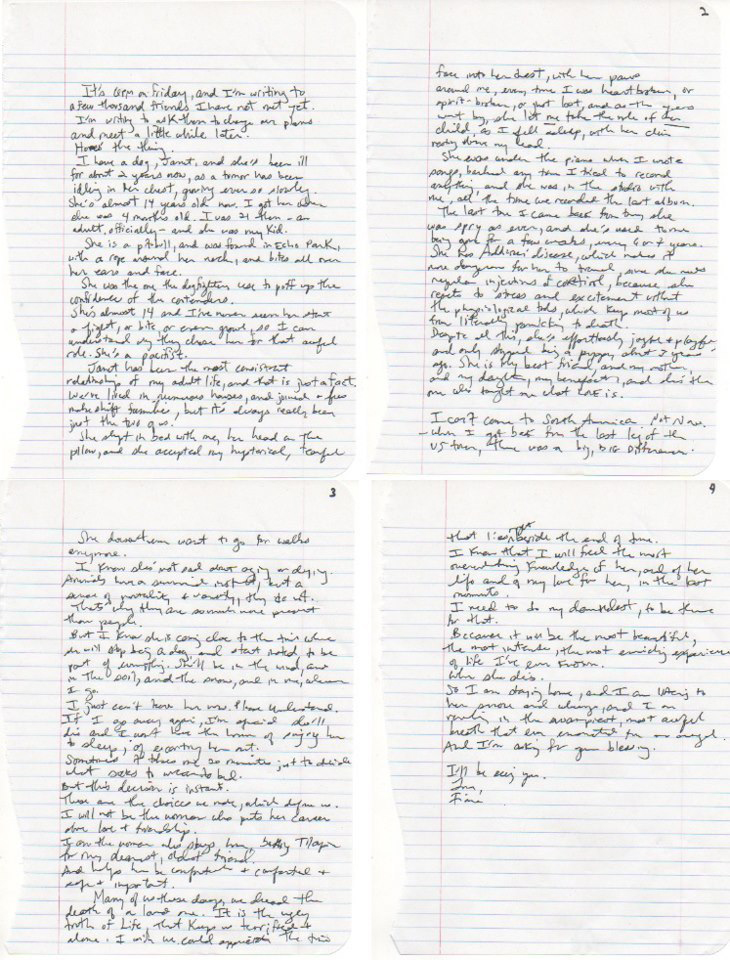 It's 6pm on Friday, and I'm writing to
a few thousand friends I have not met yet.
I'm writing to ask them to change our plans
and meet a little while later.
Here's the thing.
I have a dog, Janet, and she's been ill
for about 2 years now, as a tumor has been
idling in her chest, growing ever so slowly.
She's almost 14 years old now. I got her when
she was 4 months old. I was 21 then - an
adult, officially - and she was my kid.
She is a pitbull, and was found in Echo Park,
with a rope around her neck, and bites all over
her ears and face.
She was the one the dogfighters use to puff up the
confidence of the contenders.
She's almost 14 and I've never seen her start
a fight, or bite, or even growl, so I can
understand why they chose her for that awful
role. She's a pacifist.
Janet has been the most consistent
relationship of my adult life, and that is just a fact.
We've lived in numerous houses, and joined a few
makeshift families, but it's always really been
just the two of us.
She slept in bed with me, her head on the
pillow, and she accepted my hysterical, tearful
2
face into her chest, with her paws
around me, every time I was heartbroken, or
spirit-broken, or just lost, and as the years
went by, she let me take the role of her
child, as I fell asleep, with her chin
resting above my head.
She was under the piano when I wrote
songs, barked any time I tried to record
anything, and she was in the studio with
me, all the time we recorded the last album.
The last time I came back from tour, she
was spry as ever, and she's used to me
being gone for a few weeks, every 6 or 7 years.
She has Addison's disease, which makes it
more dangerous for her to travel, since she needs
regular injections of cortisol, because she
reacts to stress and excitement without
the physiological tools, which keep most of us
from literally panicking to death.
Despite all this, she's effortlessly joyful + playful,
and only stopped being a puppy about 3 years
ago. She is my best friend, and my mother,
and my daughter, my benefactor, and she's the
one who taught me what LOVE is.
I can't come to South America. Not Now.
- When I got back from the last leg of the
US tour, there was a big, BIG Difference.
3
She doesn't even want to go for walks
anymore.
I know she's not sad about aging or dying.
Animals have a survival instinct, but a
sense of mortality + vanity, they do not.
That's why they are so much more present
than people.
But I know she is coming close to the time where
she will stop being a dog and start instead to be
part of everything. She'll be in the wind, and
in the soil, and the snow, and in me, wherever
I go.
I just can't leave her now. Please Understand.
If I go away again, I'm afraid she'll
die and I won't have the honor of singing her
to sleep, of escorting her out.
Sometimes it takes me 20 minutes just to decide
what socks to wear to bed.
But this decision is instant.
These are the choices we make, which define us.
I will not be the woman who puts her career
over love + friendship.
I am the woman who stays home, baking Tilapia
for my dearest, oldest friend.
And helps her be comfortable + comforted +
safe + important.
Many of us these days, we dread the
death of a loved one. It is the ugly
truth of Life, that keeps us terrified +
alone. I wish we could appreciate the time
4
that lies right beside the end of time.
I Know that I will feel the most
overwhelming knowledge of her, and of her
life and of my love for her, in the last
moments.
I need to do my damnedest, to be there
for that.
Because it will be the most beautiful,
the most intense, the most enriching experience
of life I've ever known.
When she dies.
So I am staying home, and I am listening to
her snore and wheeze, and I am
revelling in the swampiest, most awful
breath that ever emanated from an angel.
And I'm asking for your blessing.
I'll be seeing you.
Love,
Fiona